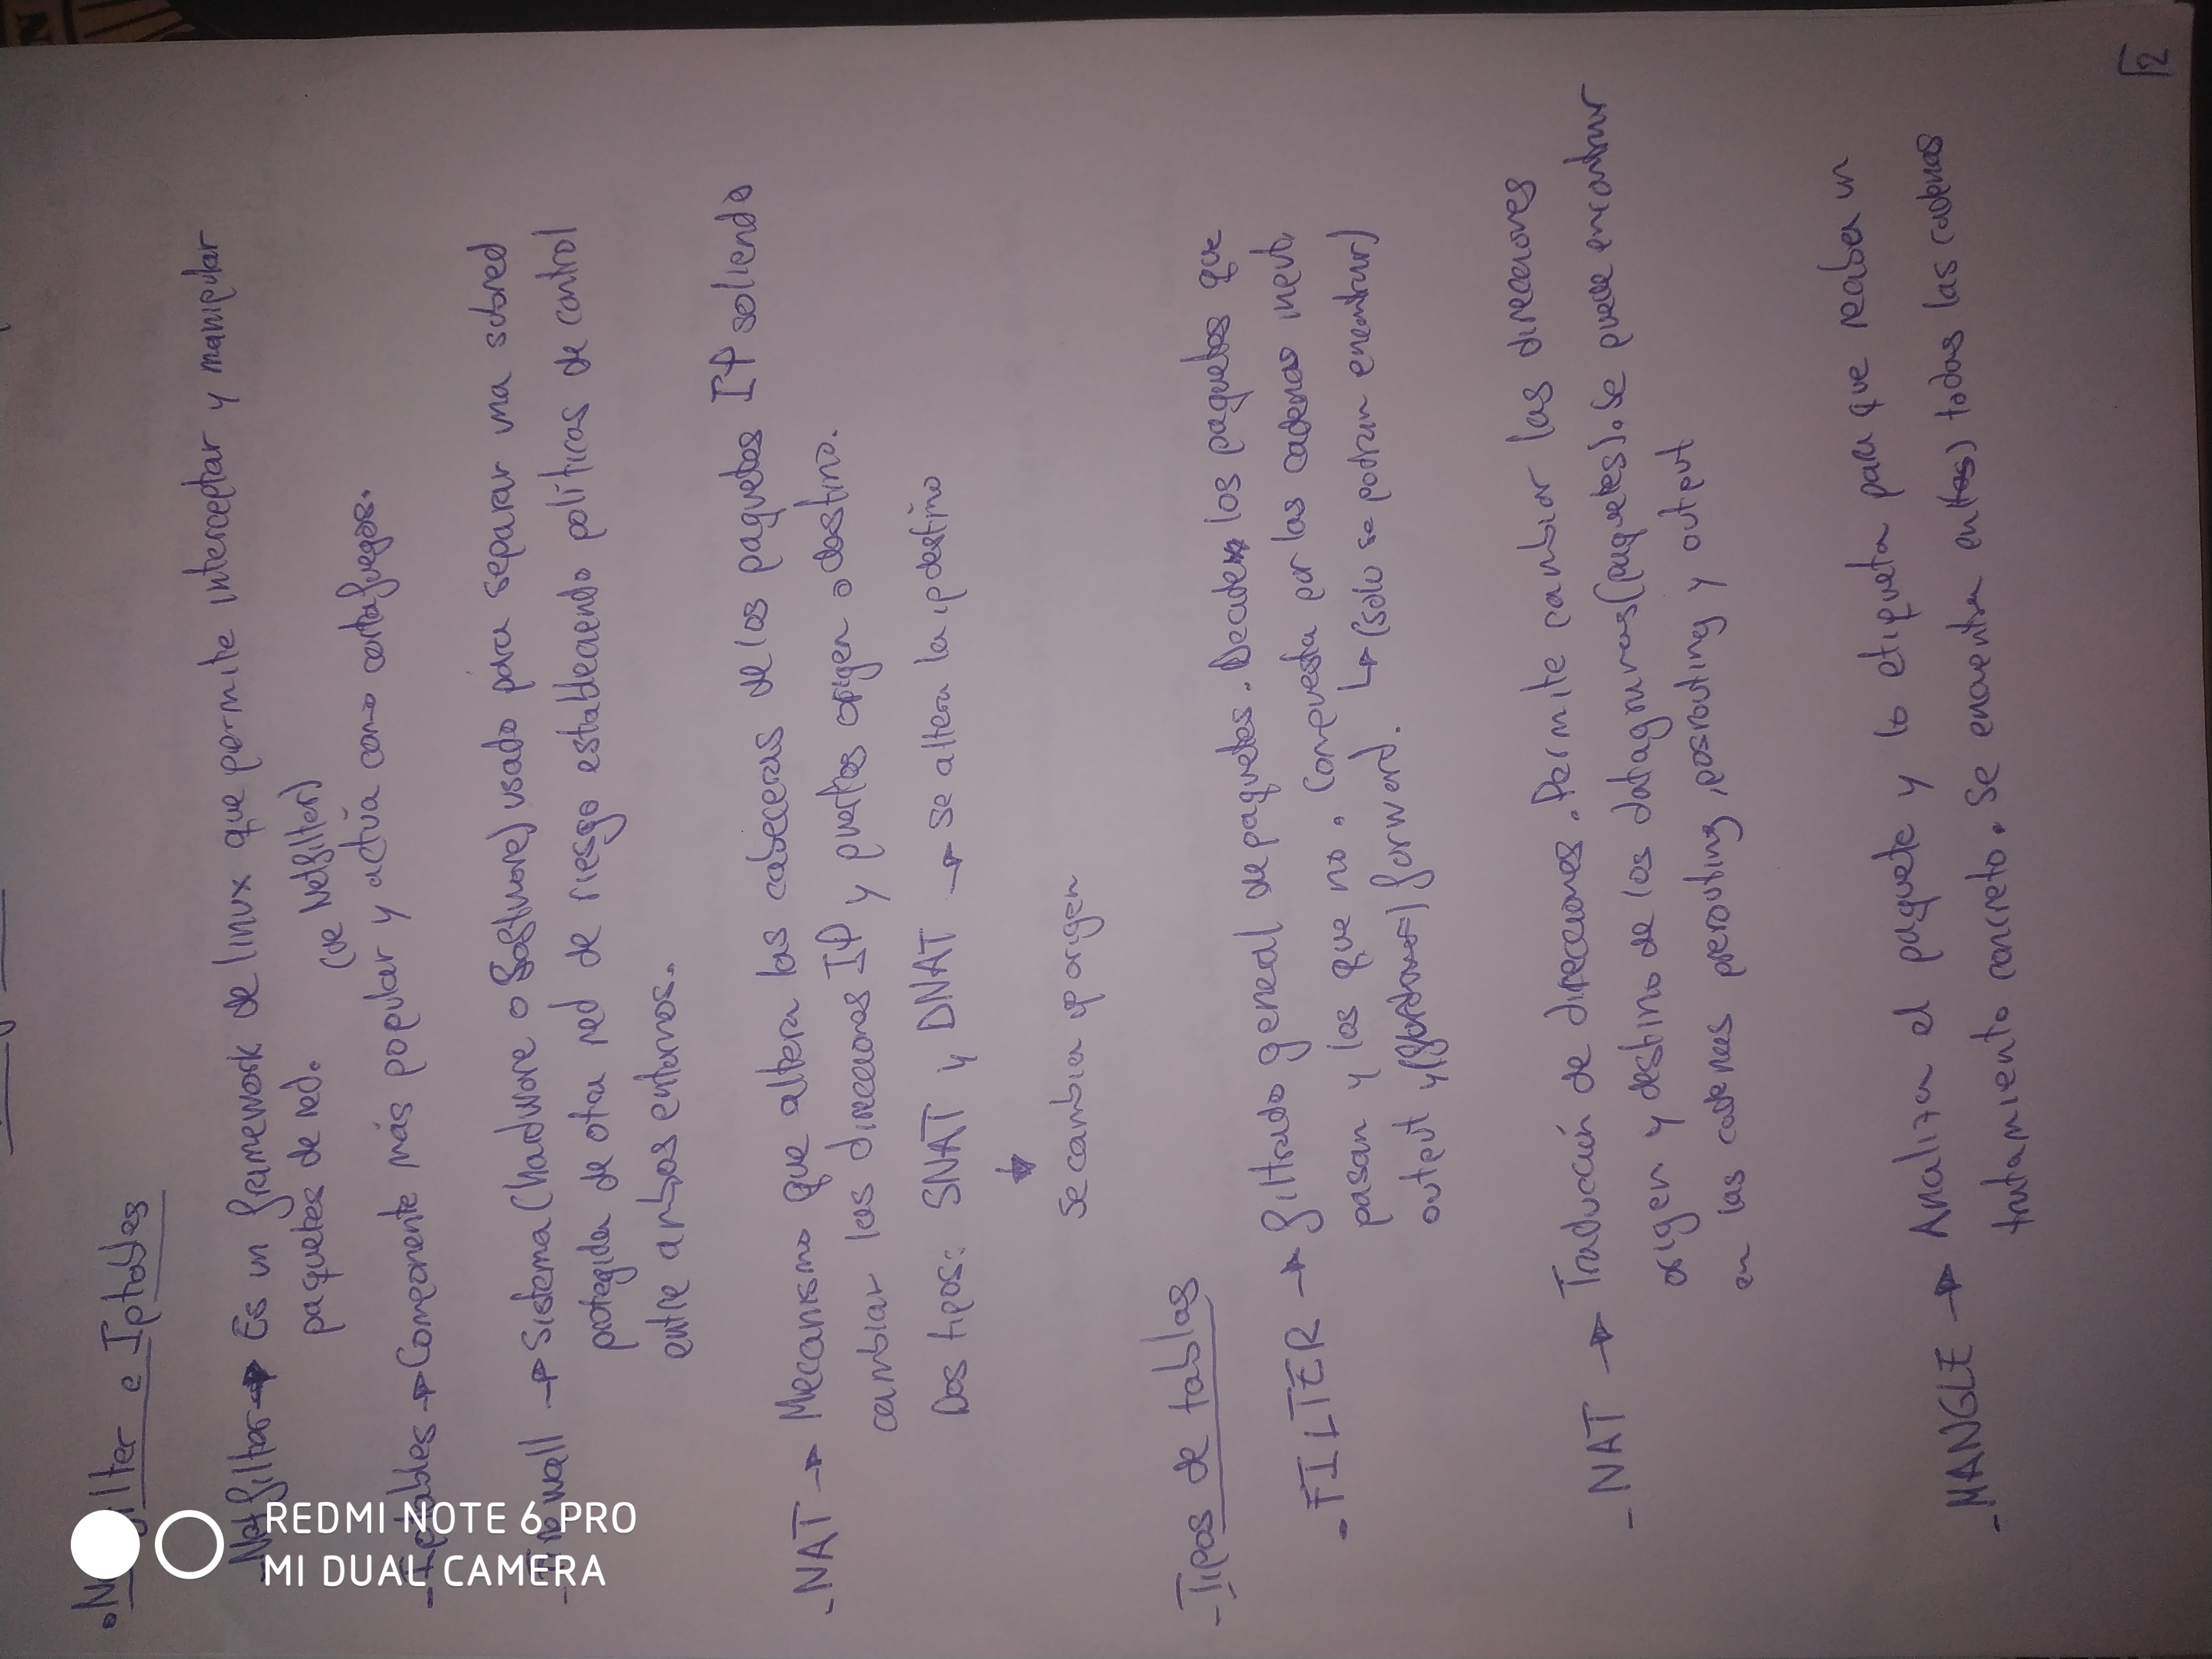 Netfilter e Iptables
- Netfilter → Es un framework de linux que permite interceptar y manipular
paquetes de red.
(de Netfilter)
- Iptables → Componente más popular y actúa como cortafuegos.
- Firewall → Sistema (Hadware o Software) usado para separar una subred
protegida de otra red de riesgo estableciendo políticas de control
entre ambos entornos.
- NAT → Mecanismo que altera las cabeceras de los paquetes IP soliendo
cambiar las direcciones IP y puertos origen o destino.
Dos tipos: SNAT y DNAT → se altera la ip destino
↓
Se cambia ip origen
- Tipos de tablas
• FILTER → Filtrado general de paquetes. Deciden los paquetes que
pasan y los que no. Compuesta por las cadenas input,
↳ (solo se podran encontrar)
output y forward.
- NAT → Traducción de direcciones. Permite cambiar las direcciones
origen y destino de los datagramas (paquetes). Se puede encontrar
en las cadenas prerouting, posrouting y output
- MANGLE → Analiza el paquete y lo etiqueta para que reciban un
tratamiento concreto. Se encuentra en todas las cadenas
2
REDMI NOTE 6 PRO
MI DUAL CAMERA